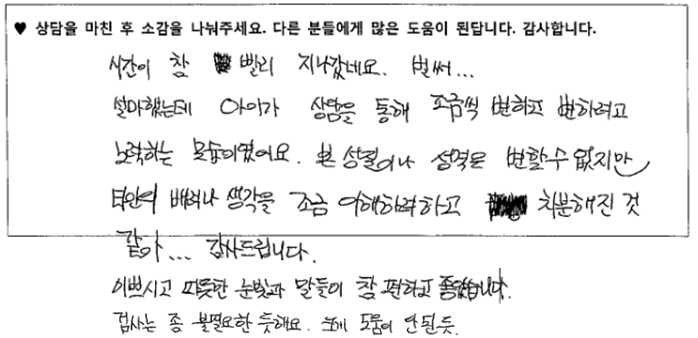 ♥ 상담을 마친 후 소감을 나눠주세요. 다른 분들에게 많은 도움이 된답니다. 감사합니다.
시간이 참 빨리 지나갔네요. 벌써...
설마했는데 아이가 상담을 통해 조금씩 변하고 변하려고
노력하는 모습이었어요. 본 성질이나 성격은 변할수 없지만
타인의 배려나 생각을 조금 이해하려하고 차분해진 것
같아... 감사드립니다.
이쁘시고 따뜻한 눈빛과 말들이 참 편하고 좋았습니다.
검사는 좀 불필요한 듯해요. 도움이 안된듯.